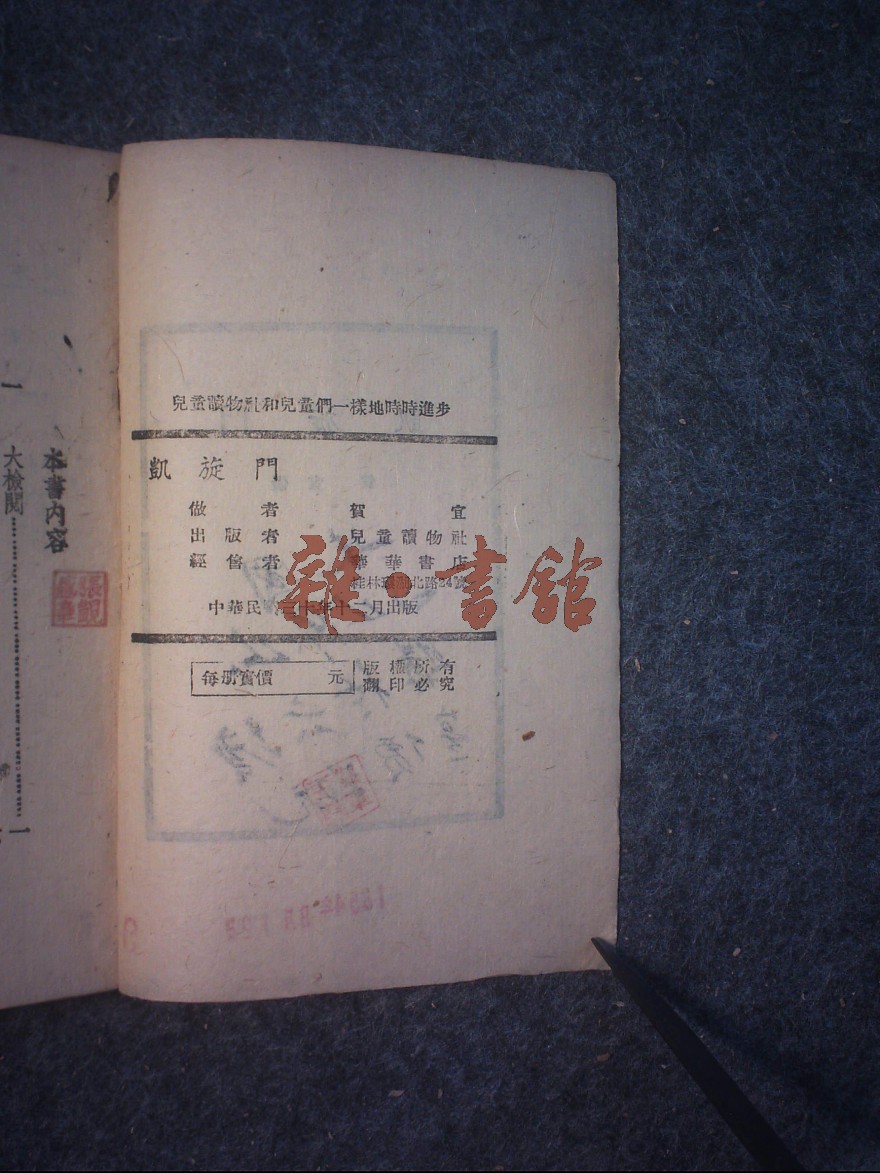 兒童讀物社和兒童們一樣地時時進步
凱旋門
做者 賀宜
出版者 兒童讀物社
經售者 華華書店
桂林環湖北路24號
中華民 三十年十二月出版
每册實價 元
版權所有
翻印必究
本書内容
一
大檢閱……………一
雜·書館